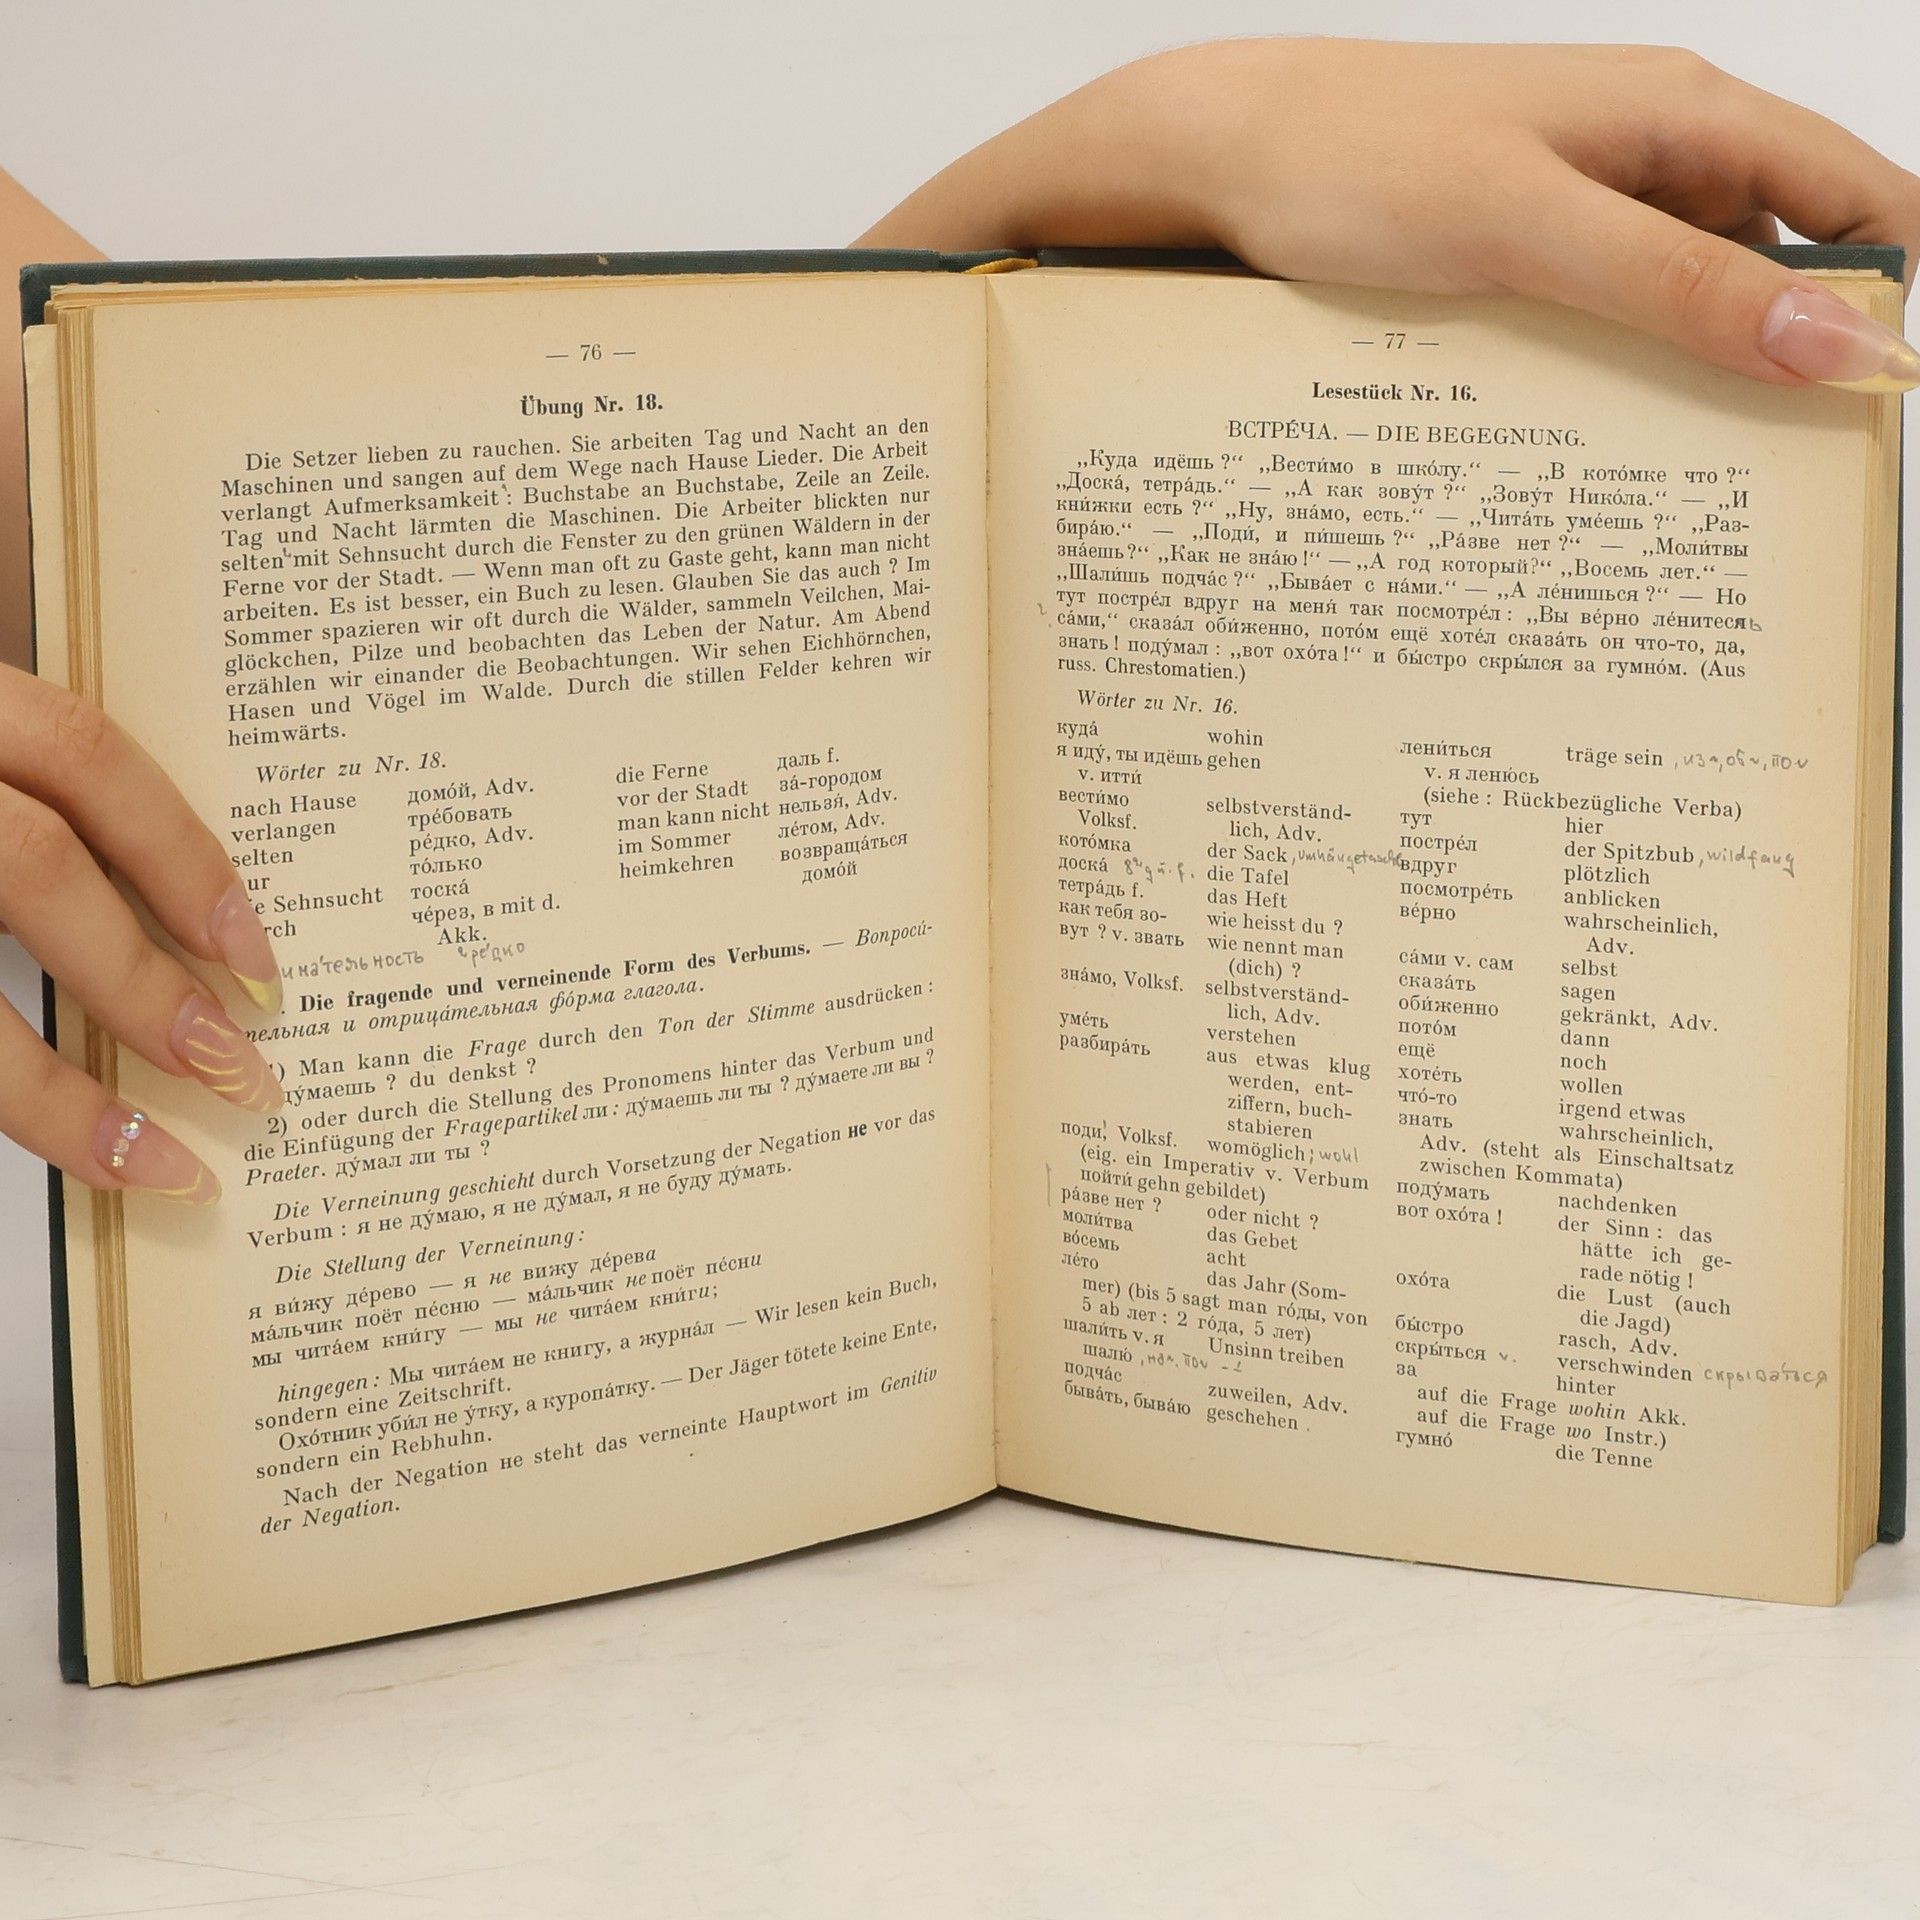 — 76 —
Übung Nr. 18.
Die Setzer lieben zu rauchen. Sie arbeiten Tag und Nacht an den
Maschinen und sangen auf dem Wege nach Hause Lieder. Die Arbeit
verlangt Aufmerksamkeit : Buchstabe an Buchstabe, Zeile an Zeile.
Tag und Nacht lärmten die Maschinen. Die Arbeiter blickten nur
selten mit Sehnsucht durch die Fenster zu den grünen Wäldern in der
Ferne vor der Stadt. — Wenn man oft zu Gaste geht, kann man nicht
arbeiten. Es ist besser, ein Buch zu lesen. Glauben Sie das auch ? Im
Sommer spazieren wir oft durch die Wälder, sammeln Veilchen, Mai-
glöckchen, Pilze und beobachten das Leben der Natur. Am Abend
erzählen wir einander die Beobachtungen. Wir sehen Eichhörnchen,
Hasen und Vögel im Walde. Durch die stillen Felder kehren wir
heimwärts.
Wörter zu Nr. 18.
nach Hause домо́й, Adv.
verlangen тре́бовать
selten ре́дко, Adv.
ur то́лько
e Sehnsucht тоска́
rch че́рез, в mit d.
Akk.
die Ferne даль f.
vor der Stadt за́-городом
man kann nicht нельзя́, Adv.
im Sommer ле́том, Adv.
heimkehren возвраща́ться
домо́й
ре́дко
. Die fragende und verneinende Form des Verbums. — Вопроси́-
тельная и отрица́тельная фо́рма глагола.
1) Man kann die Frage durch den Ton der Stimme ausdrücken :
ду́маешь ? du denkst ?
2) oder durch die Stellung des Pronomens hinter das Verbum und
die Einfügung der Fragepartikel ли : ду́маешь ли ты ? ду́маете ли вы ?
Praeter. ду́мал ли ты ?
Die Verneinung geschieht durch Vorsetzung der Negation не vor das
Verbum : я не ду́маю, я не ду́мал, я не буду ду́мать.
Die Stellung der Verneinung :
я ви́жу де́рево — я не вижу де́рева
ма́льчик поёт пе́сню — ма́льчик не поёт пе́сни
мы чита́ем кни́гу — мы не чита́ем кни́ги;
hingegen : Мы чита́ем не книгу, а журна́л — Wir lesen kein Buch,
sondern eine Zeitschrift.
Охо́тник уби́л не у́тку, а куропа́тку. — Der Jäger tötete keine Ente,
sondern ein Rebhuhn.
Nach der Negation не steht das verneinte Hauptwort im Genitiv
der Negation.
— 77 —
Lesestück Nr. 16.
ВСТРЕ́ЧА. — DIE BEGEGNUNG.
„Куда идёшь ?“ „Вести́мо в шко́лу.“ — „В кото́мке что ?“
„Доска́, тетра́дь.“ — „А как зову́т ?“ „Зову́т Нико́ла.“ — „И
кни́жки есть ?“ „Ну, зна́мо, есть.“ — „Чита́ть уме́ешь ?“ „Раз-
бира́ю.“ — „Поди́, и пи́шешь ?“ „Ра́зве нет ?“ — „Моли́твы
зна́ешь?“ „Как не зна́ю !“ — „А год который?“ „Восемь лет.“ —
„Шали́шь подча́с ?“ „Быва́ет с на́ми.“ — „А ле́нишься ?“ — Но
тут постре́л вдруг на меня́ так посмотре́л : „Вы ве́рно ле́нитесяь
са́ми,“ сказа́л оби́женно, пото́м ещё хоте́л сказа́ть он что-то, да,
знать ! поду́мал : „вот охо́та !“ и бы́стро скры́лся за гумно́м. (Aus
russ. Chrestomatien.)
Wörter zu Nr. 16.
куда́ wohin
я иду́, ты идёшь gehen
v. итти́
вести́мо selbstverständ-
Volksf. lich, Adv.
кото́мка der Sack , Umhängetasche
доска́ die Tafel
тетра́дь f. das Heft
как тебя зо- wie heisst du ?
вут ? v. звать wie nennt man
(dich) ?
зна́мо, Volksf. selbstverständ-
lich, Adv.
уме́ть verstehen
разбира́ть aus etwas klug
werden, ent-
ziffern, buch-
stabieren
поди́, Volksf. womöglich ; wohl
(eig. ein Imperativ v. Verbum
пойти́ gehn gebildet)
ра́зве нет ? oder nicht ?
моли́тва das Gebet
во́семь acht
ле́то das Jahr (Som-
mer) (bis 5 sagt man го́ды, von
5 ab лет : 2 го́да, 5 лет)
шали́ть v. я Unsinn treiben
шалю́
подча́с zuweilen, Adv.
быва́ть, быва́ю geschehen
лени́ться träge sein
v. я леню́сь
(siehe : Rückbezügliche Verba)
тут hier
постре́л der Spitzbub , wildfang
вдруг plötzlich
посмотре́ть anblicken
ве́рно wahrscheinlich,
Adv.
са́ми v. сам selbst
сказа́ть sagen
оби́женно gekränkt, Adv.
пото́м dann
ещё noch
хоте́ть wollen
что́-то irgend etwas
знать wahrscheinlich,
Adv. (steht als Einschaltsatz
zwischen Kommata)
поду́мать nachdenken
вот охо́та ! der Sinn : das
hätte ich ge-
rade nötig !
охо́та die Lust (auch
die Jagd)
бы́стро rasch, Adv.
скры́ться v. verschwinden скрыва́ться
за hinter
auf die Frage wohin Akk.
auf die Frage wo Instr.)
гумно́ die Tenne